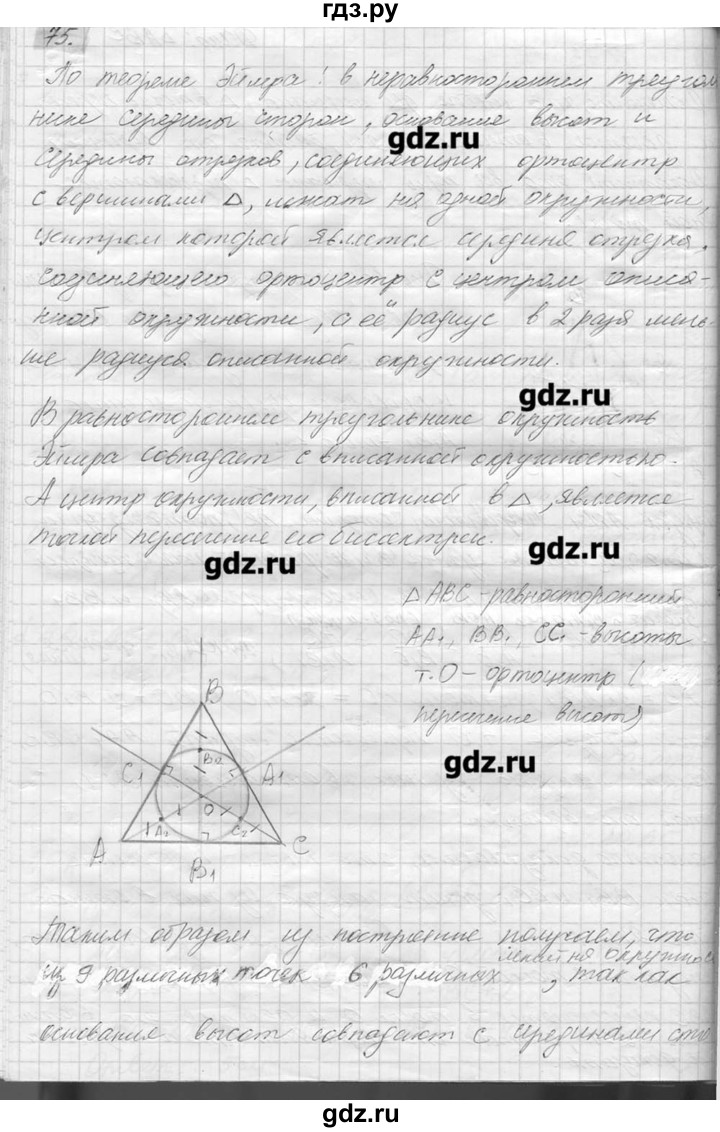 гдз.ру
75.
По теореме Эйлера! в неравностороннем треугол
нике середины сторон, основание высот и
gdz.ru
середины отрезков, соединяющих ортоцентр
с вершинами △, лежат на одной окружности,
центром которой является середина отрезка,
соединяющего ортоцентр с центром описа-
нной окружности, а её радиус в 2 раза мень-
ше радиуса описанной окружности.
gdz.ru
В равностороннем треугольнике окружность
Эйлера совпадает с вписанной окружностью.
А центр окружности, вписанной в △, является
точкой пересечение его биссектрис.
gdz.ru
gdz.ru
△ ABC - равносторонний
AA₁, BB₁, CC₁ - высоты
т. O - ортоцентр (
пересечение высот)
gdz.ru
B
B₂
C₁
A₁
O
A₂
C₂
A
C
B₁
Таким образом из построение получаем, что
лежит на окружнос
из 9 различных точек 6 различных, так как
основания высот совпадают с серединами сто
gdz.ru